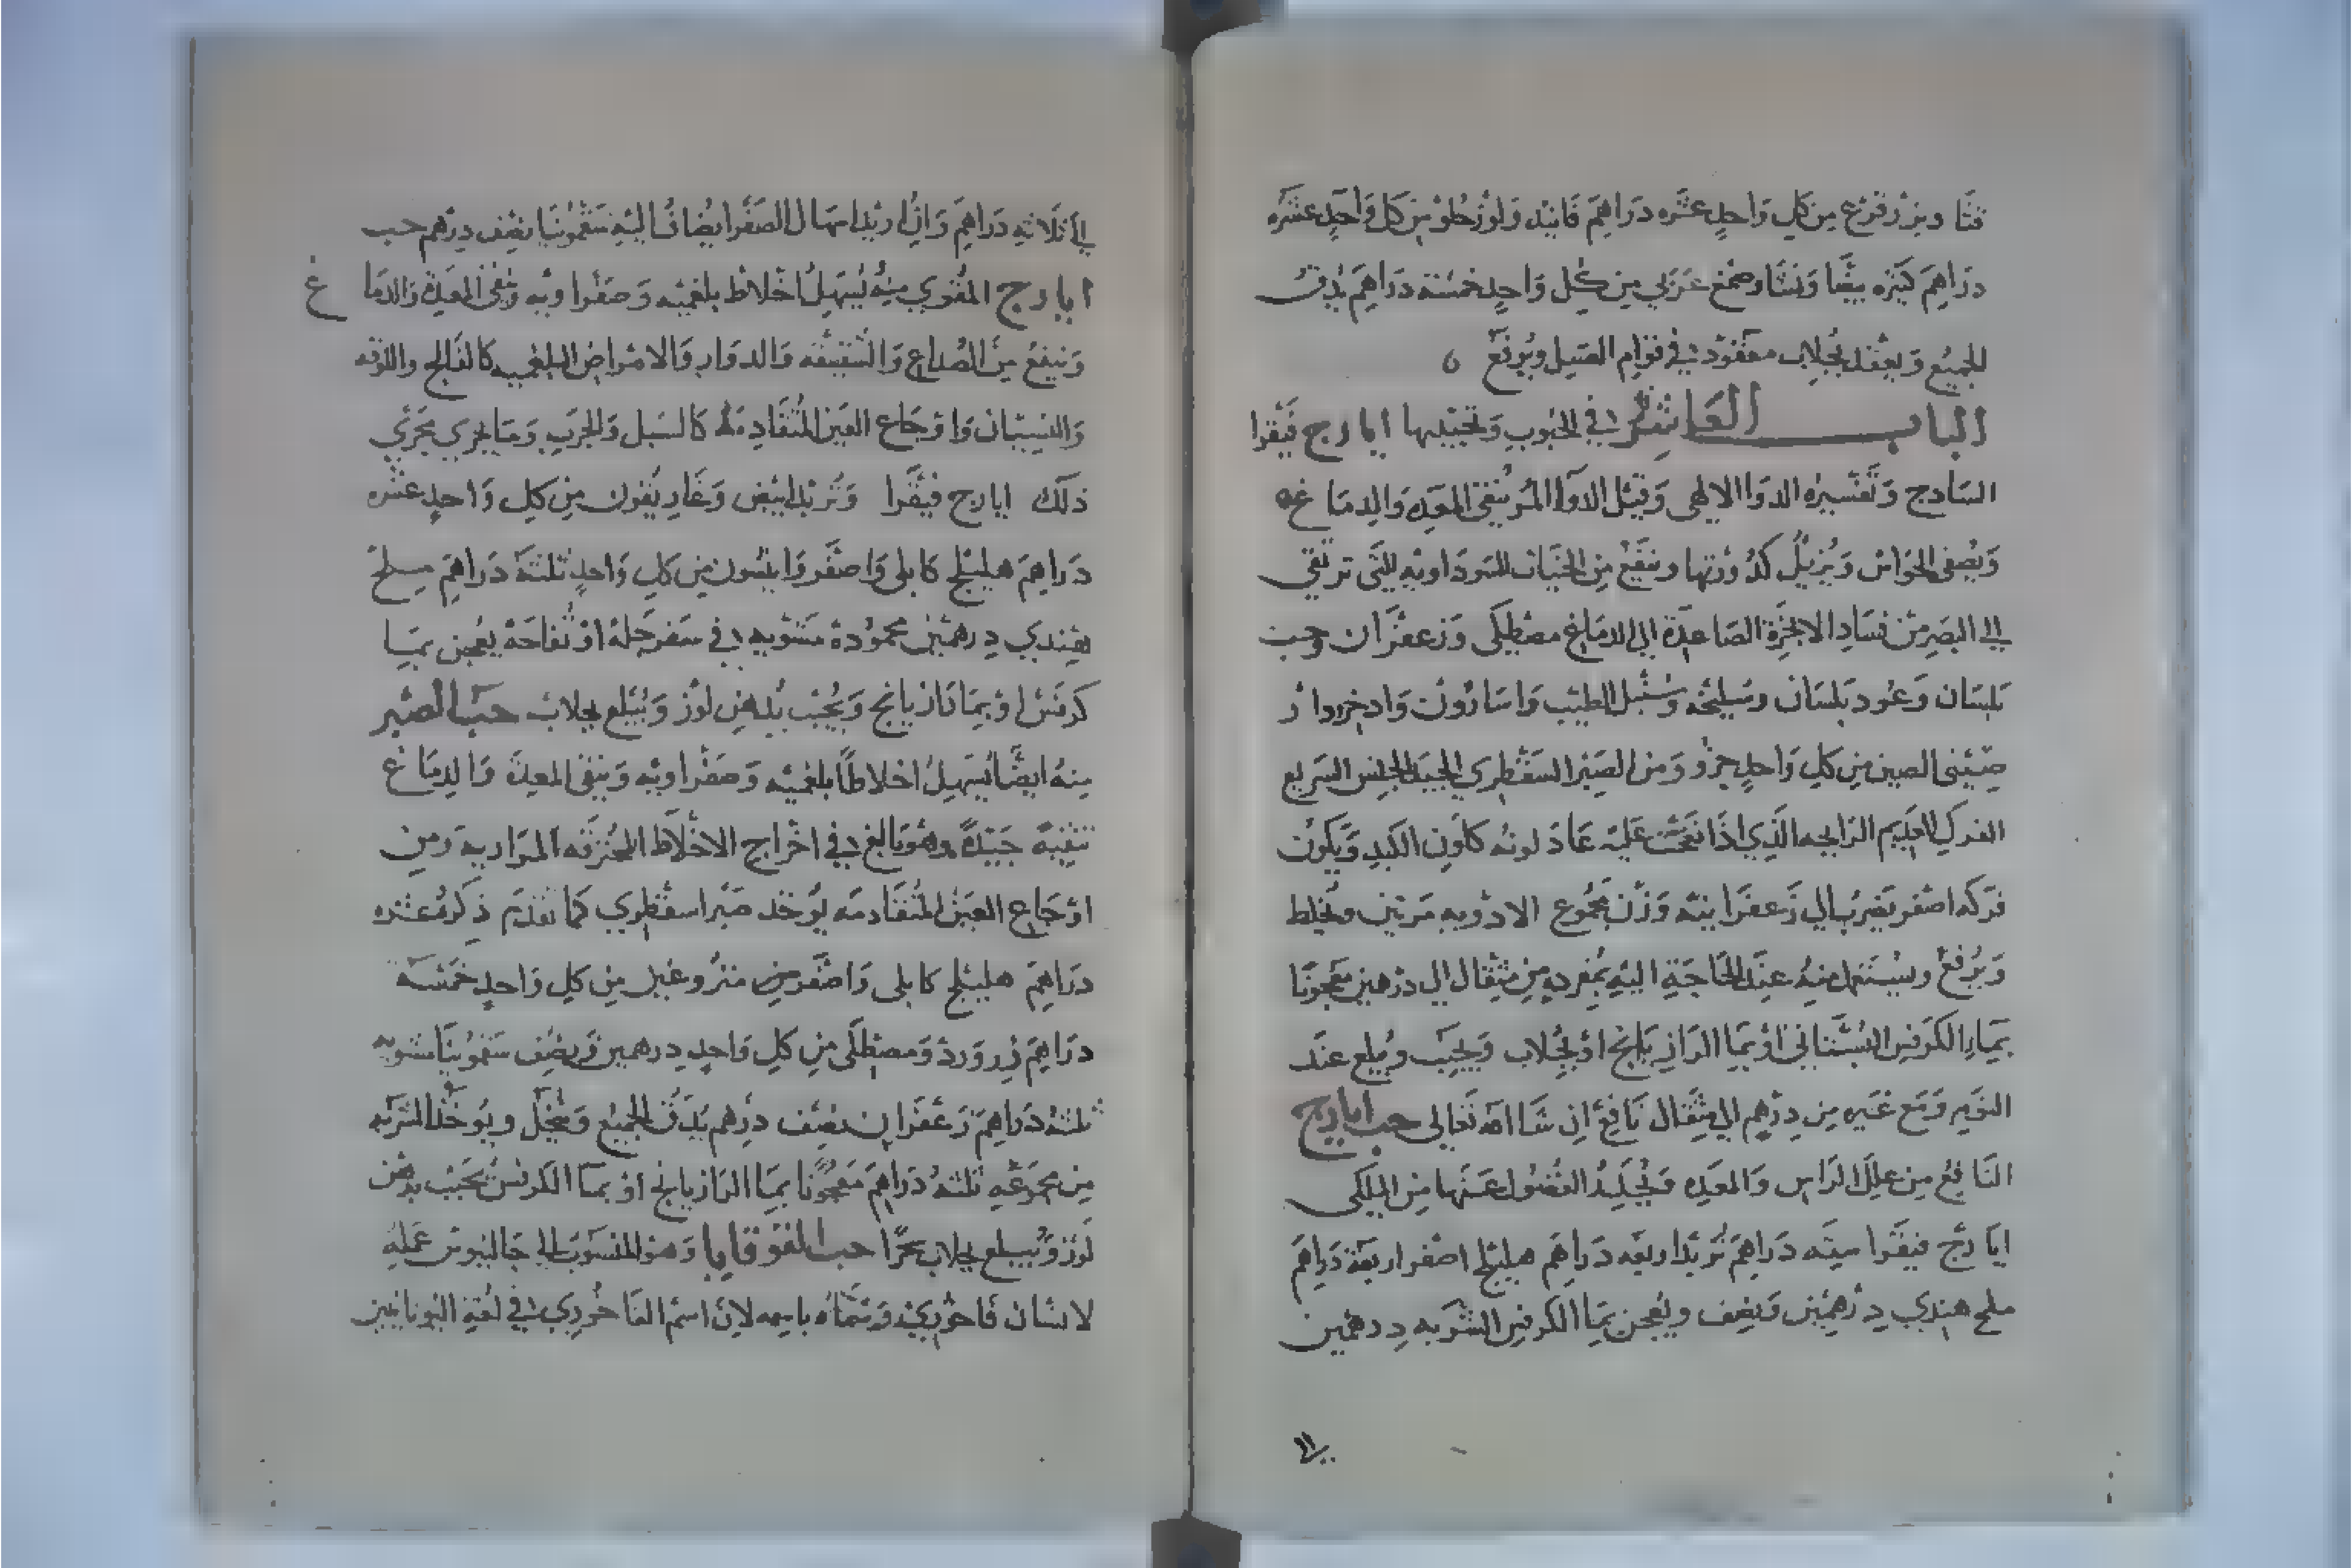 قثا وبزر قرع من كل واحد عشره دراهم فانيد ولوز حلو من كل واحد عشره
دراهم كثيره بيضا ونشا وصمغ عربي من كل واحد خمسة دراهم يدق
الجميع ويعقد بجلاب معقود في قوام العسل ويرفع
الباب العاشر في الحبوب وتحبيبها ايارج فيقرا
السادج وتفسيره الدوا الالهي وقيل الدوا المر ينقي المعده والدماغ
ويصفي الحواس ويزيل كدورتها وينفع من الخيالات السوداويه التي ترتقي
الي البصر من فساد الابخرة الصاعدة الي الدماغ مصطكي وزعفران وحب
بلسان وعود بلسان وسليخه وسنبل الطيب واسارون واذخر ودار
صيني الصين من كل واحد جزو ومن الصبر السقطري الجيد الجنس السريع
الفرك العديم الرايحه الذي اذا نفخت عليه عاد لونه كلون الكبد ويكون
فركه اصفر يضرب الي زعفرانيه وزن مجموع الادويه مرتين ويخلط
ويرفع ويستعمل منه عند الحاجة اليه بمفرده من مثقال الي درهمين معجونا
بماء الكرفس البستاني او بما الرازيانج او بجلاب ويحبب ويبلع عند
النوم ومع غيره من درهم الي مثقال نافع ان شا الله تعالى حب ايارج
النافع من علل الراس والمعده وتحليل الفضول عنها من الملكي
ايارج فيقرا سته دراهم تربد اربعه دراهم هليلج اصفر اربعة دراهم
ملح هندي درهمين ونصف ويعجن بما الكرفس الشربه درهمين
الي ثلاثه دراهم وان اريد اسهال الصفرا يضاف اليه سقمونيا نصف درهم حب
ايارج المقوي منه يسهل اخلاط بلغميه وصفراويه وينقي المعدة والدماغ
وينفع من الصداع والشقيقه والدوار والامراض البلغميه كالفالج واللقوه
والنسيان واوجاع العين المتقادمة كالسبل والجرب وما يجري مجري
ذلك ايارج فيقرا وتربد ابيض وغاريقون من كل واحد عشره
دراهم هليلج كابلي واصفر وانيسون من كل واحد ثلثة دراهم ملح
هندي درهمين محمودة مشويه في سفرجلة او تفاحة يعجن بما
كرفس او بما رازيانج ويحبب بدهن لوز ويبلع بجلاب حب الصبر
منه ايضا يسهل اخلاطا بلغميه وصفراويه وينقي المعدة والدماغ
تنقية جيدة وهو بالغ في اخراج الاخلاط المحترقه المراريه ومن
اوجاع العين المتقادمه يوخذ صبر اسقطري كما تقدم ذكره عشره
دراهم هليلج كابلي واصفر من منزوعين من كل واحد خمسة
دراهم زر ورد ومصطكي من كل واحد درهمين ونصف سقمونيا مشويه
ثلثة دراهم زعفران نصف درهم يدق الجميع وينخل ويوخذ الشربه
من مجموعه ثلثة دراهم معجونا بما الرازيانج او بما الكرفس يحبب بدهن
لوز ويبلع بجلاب بحرا حب القوقايا وهو المنسوب الي جالينوس عمله
لانسان فاخوري وسماه باسمه لان اسم الفاخوري في لغة اليونانيين